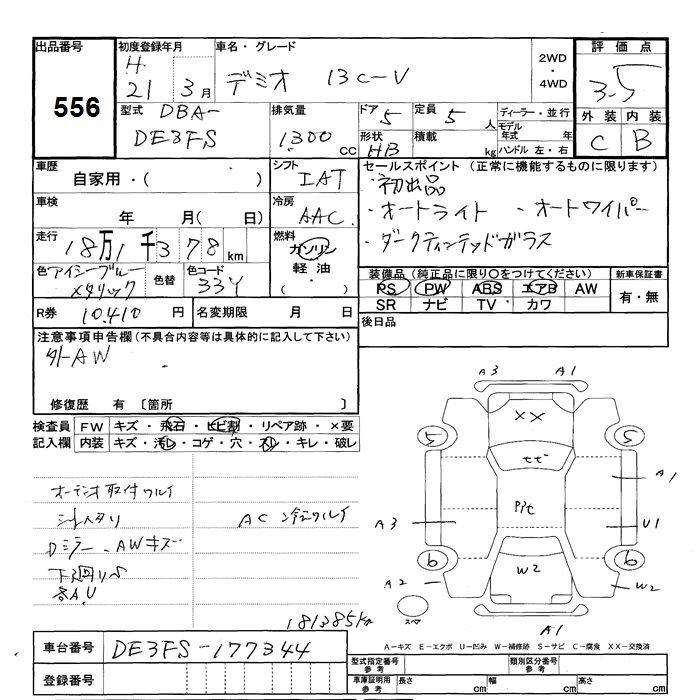 出品番号
556
初度登録年月
H.
21 3月
車名・グレード
デミオ 13C-V
2WD
・
4WD
評価点
3.5
型式 DBA-
DE3FS
排気量
1300 CC
ドア 5
定員 5 人
形状 HB
積載 kg
ディーラー・並行
モデル年式 年
ハンドル 左・右
外装 内装
C B
車歴
自家用・( )
シフト
IAT
セールスポイント (正常に機能するものに限ります)
・初出品
・オートライト ・オートワイパー
・ダークティンテッドガラス
車検
年 月( 日)
冷房
AAC
走行
18万1千378km
燃料
ガソリン
軽油
・( )
色 アイシーブルー
メタリック
色替
色コード
33Y
装備品 (純正品に限り○をつけてください)
新車保証書
PS PW ABS エアB AW
SR ナビ TV カワ
有・無
R券 10,410 円
名変期限 月 日
後日品
注意事項申告欄 (不具合内容等は具体的に記入して下さい)
外AW
修復歴 有 〔箇所 〕
検査員 FW キズ・飛石・ヒビ割・リペア跡・×要
記入欄 内装 キズ・汚レ・コゲ・穴・スレ・キレ・破レ
オーディオ取付ワルイ
シートスレ
AC 冷えワルイ
Dミラー、AWキズ
下回りS
各A.U
181385km
A3 A1
XX
5 5
A1
A3
U1
6 6
W2
A2
W2
スペ
A1
車台番号 DE3FS-177344
登録番号
A－キズ E－エクボ U－凹み W－補修跡 S－サビ C－腐食 XX－交換済
型式指定番号 参考
類別区分番号 参考
車庫証明用 参考
長さ cm
幅 cm
高さ cm